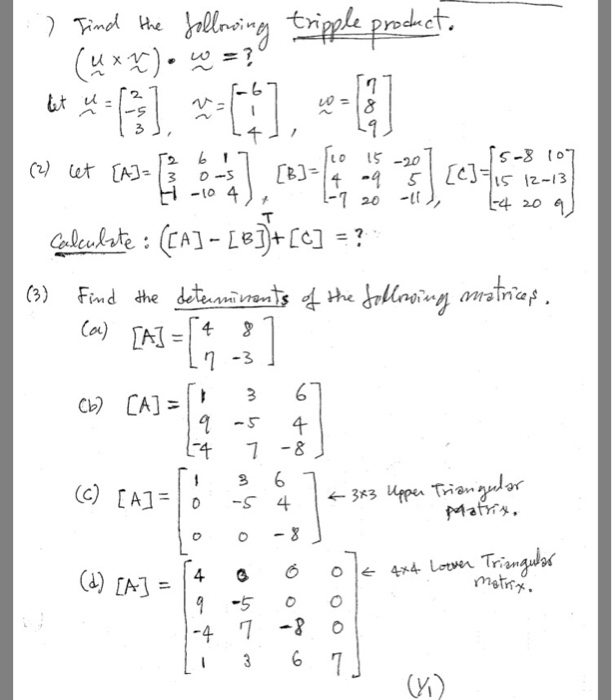 ) Find the following tripple product.
(u × v) • w = ?
let u = [2 -5 3], v = [-6 1 4], w = [7 8 9]
(2) Let [A] = [2 6 1; 3 0 -5; -1 -10 4], [B] = [10 15 -20; 4 -9 5; -7 20 -11], [C] = [5 -8 10; 15 12 -13; -4 20 9]
Calculate : ([A] - [B])ᵀ + [C] = ?
(3) Find the determinants of the following matrices.
(a) [A] = [4 8; 7 -3]
(b) [A] = [1 3 6; 9 -5 4; -4 7 -8]
(c) [A] = [1 3 6; 0 -5 4; 0 0 -8] ← 3×3 Upper Triangular Matrix.
(d) [A] = [4 0 0 0; 9 -5 0 0; -4 7 -8 0; 1 3 6 7] ← 4×4 Lower Triangular Matrix.
(Y1)